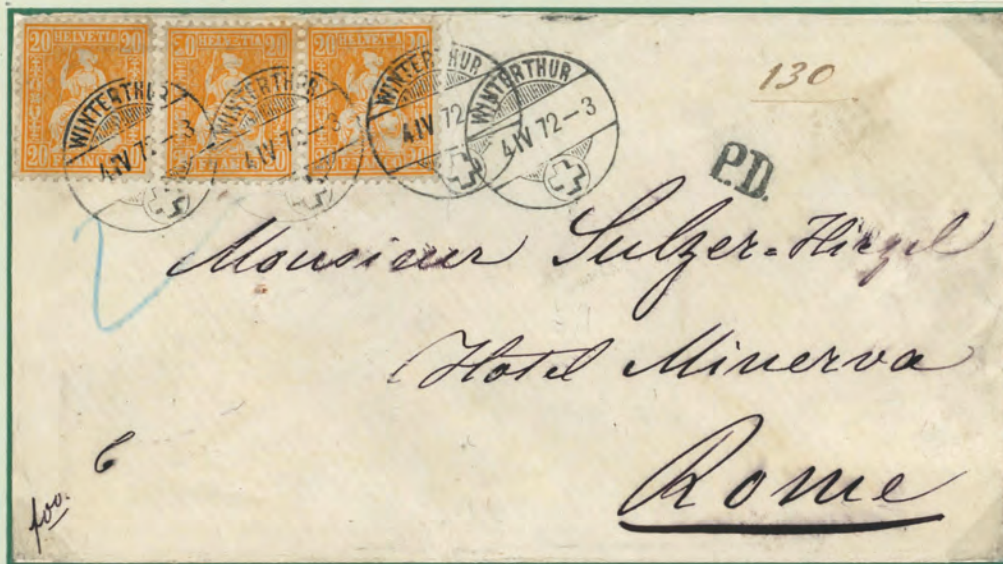 20 HELVETIA 20
20 FRANCO 20
20 HELVETIA 20
20 FRANCO 20
20 HELVETIA 20
20 FRANCO 20
WINTERTHUR
4 IV 72-3
WINTERTHUR
4 IV 72-3
WINTERTHUR
4 IV 72
WINTERTHUR
4 IV 72-3
130
P.D.
Monsieur Sulzer-Hirzel
Hotel Minerva
Rome